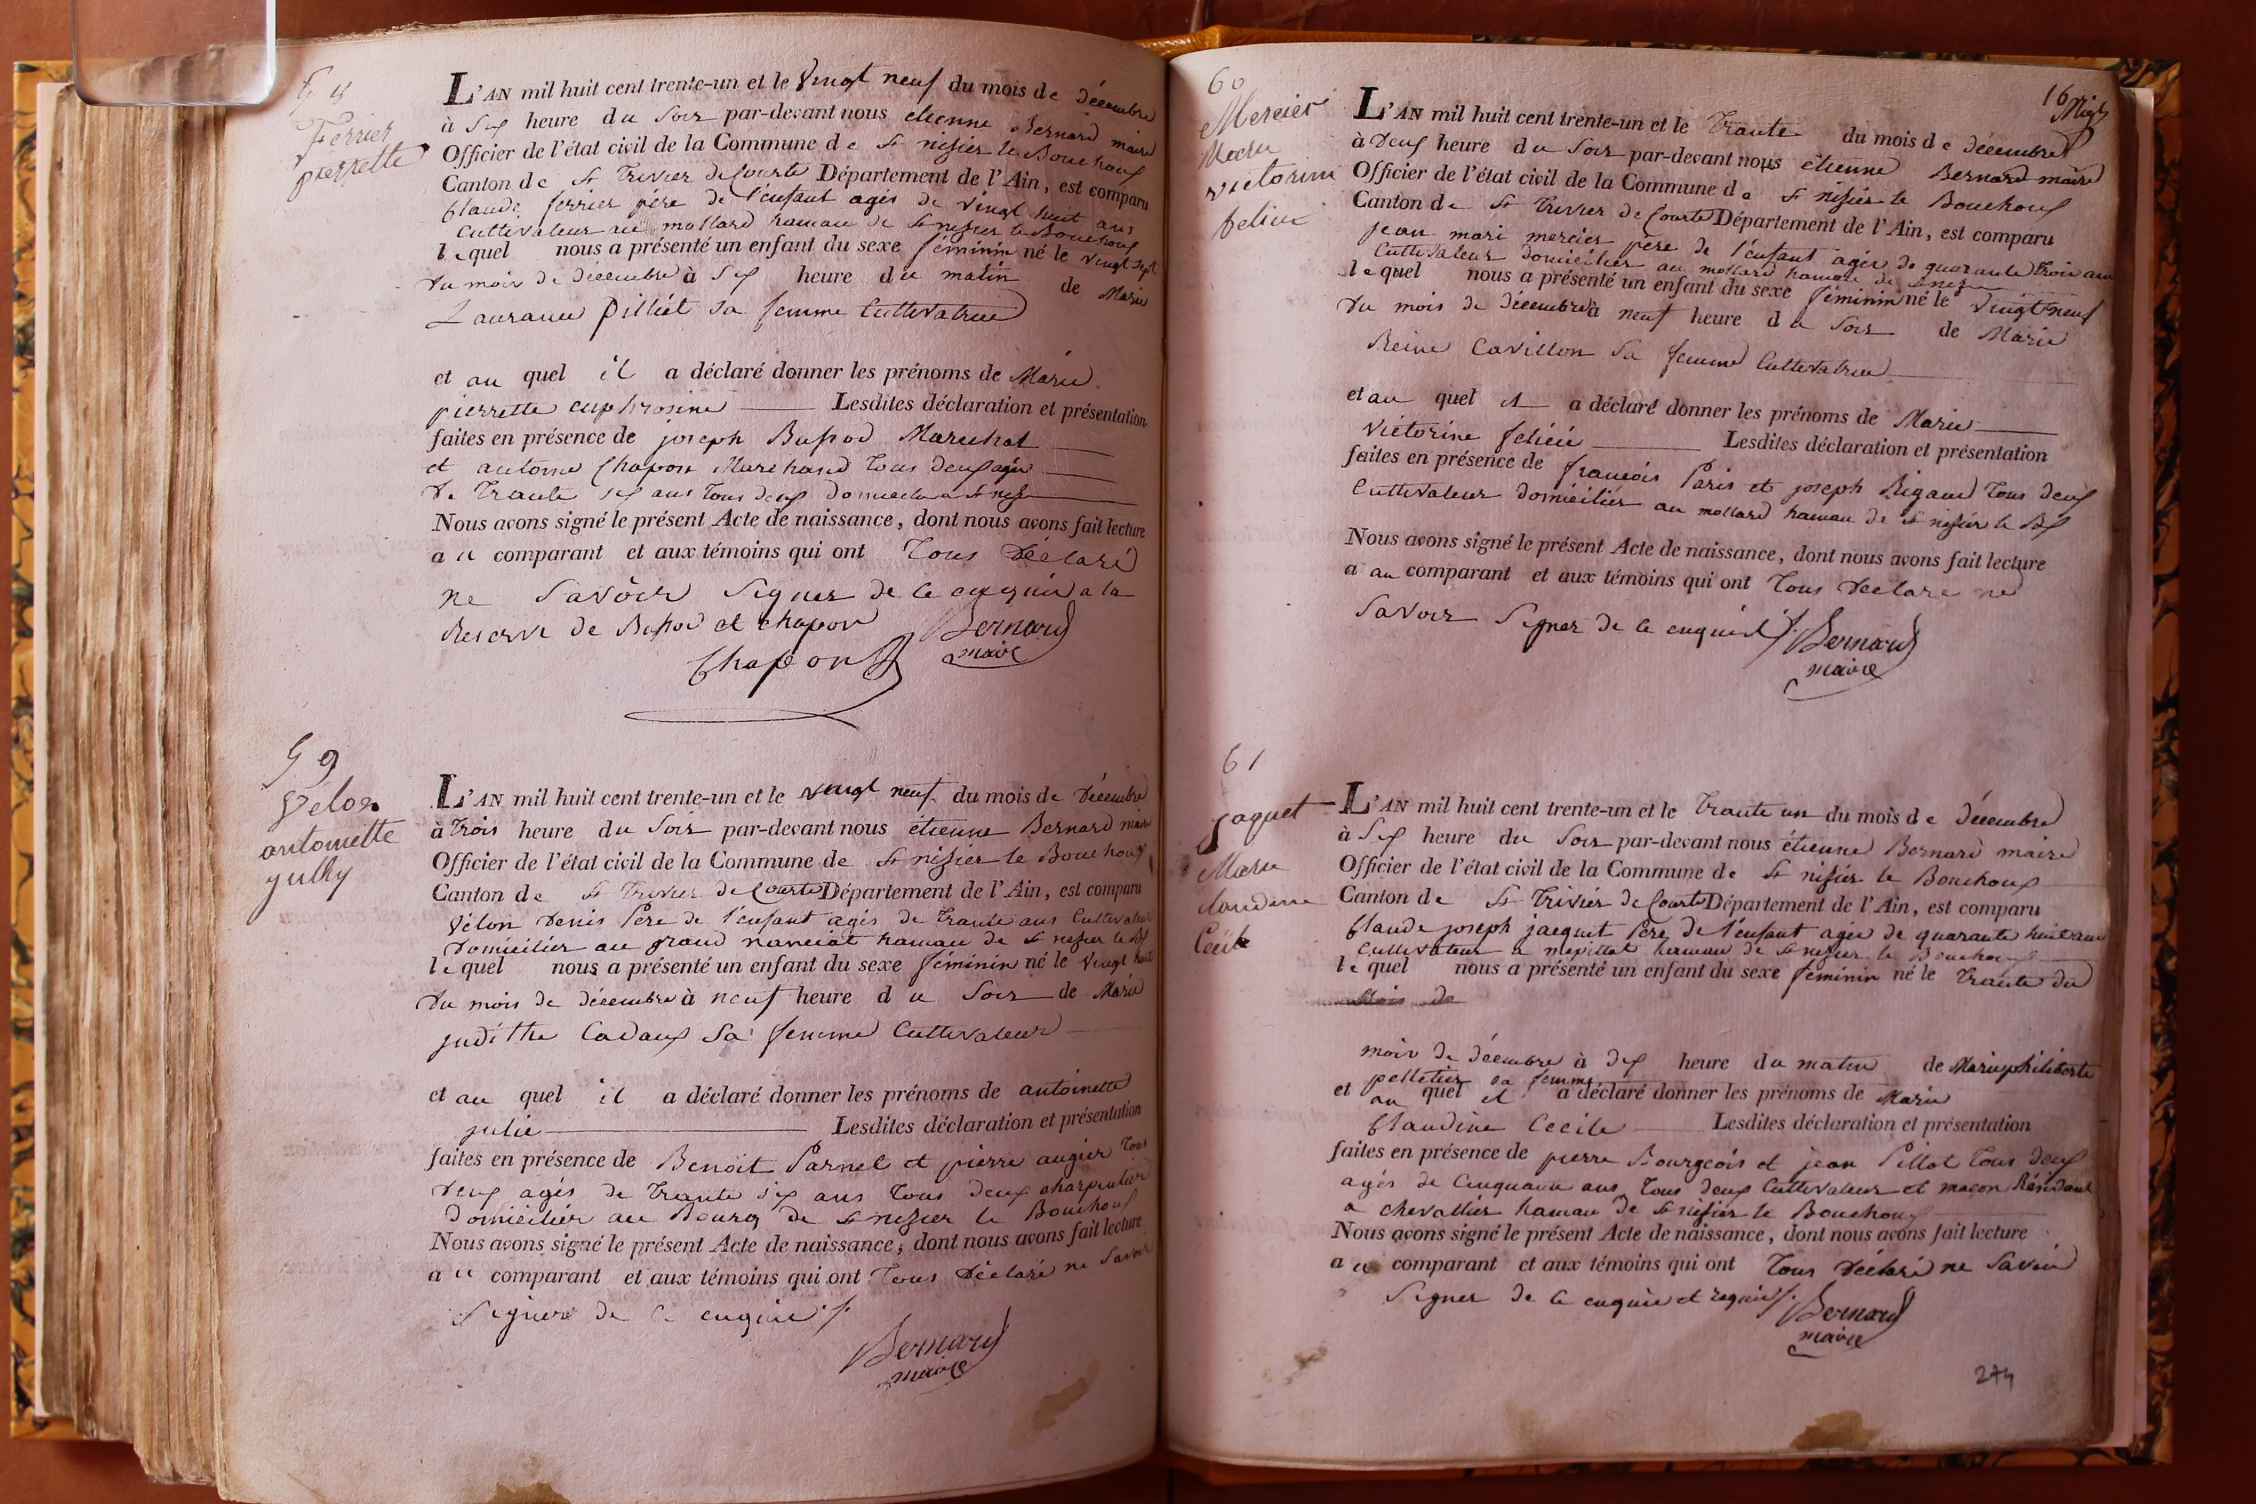 58
Ferrier
pierrette
L'AN mil huit cent trente-un et le vingt neuf du mois de décembre
à six heure du soir par-devant nous étienne Bernard maire
Officier de l'état civil de la Commune de St nisier le Bouchoux
Canton de St trivier de Courte Département de l'Ain, est comparu
Claude ferrier père de l'enfant agés de vingt huit ans
Cultivateur au mollard hamau de St nisier le Bouchoux
lequel nous a présenté un enfant du sexe féminin né le vingt sept
du mois de décembre à six heure du matin de Marie
Laurance Pilliét sa femme Cultivatrice
et au quel il a déclaré donner les prénoms de Marie
pierrette euphrosine Lesdites déclaration et présentation
faites en présence de joseph Buffod Maréchal
et antoine Chapon Marchand tous deux agés
de trante six ans tous deux domicilié a St nisier
Nous avons signé le présent Acte de naissance, dont nous avons fait lecture
a u comparant et aux témoins qui ont tous déclaré
ne savoir signer de ce enquis a la
Reserve de Buffod et chapon Bernard
Chapon maire
59
Vélon
antoinette
jully
L'AN mil huit cent trente-un et le vingt neuf du mois de décembre
à trois heure du soir par-devant nous étienne Bernard maire
Officier de l'état civil de la Commune de St nisier le Bouchoux
Canton de St trivier de Courte Département de l'Ain, est comparu
Vélon denis Pere de l'enfant agés de trante ans Cultivateur
domicilier au grand nanciat hamau de St nisier le Bx
lequel nous a présenté un enfant du sexe féminin né le vingt huit
du mois de décembre à neuf heure du soir de Marie
judithe Cadaux sa femme Cultivateur
et au quel il a déclaré donner les prénoms de antoinette
julie Lesdites déclaration et présentation
faites en présence de Benoit Parnel et pierre augier tous
deux agés de trante six ans tous deux charpentier
domicilier au Bourg de St nisier le Bouchoux
Nous avons signé le présent Acte de naissance, dont nous avons fait lecture
a u comparant et aux témoins qui ont tous déclaré ne savoir
signer de ce enquis
Bernard
maire
60
Mercier
Marie
victorine
felicie
16
L'AN mil huit cent trente-un et le trante du mois de décembre
à deux heure du soir par-devant nous étienne Bernard maire
Officier de l'état civil de la Commune de St nisier le Bouchoux
Canton de St trivier de Courte Département de l'Ain, est comparu
jean mari mercier père de l'enfant agés de quarante trois ans
Cultivateur domicilier au mollard hamau de St nisier
lequel nous a présenté un enfant du sexe féminin né le vingt neuf
du mois de décembre à neuf heure du soir de Marie
Reine Cavillon sa femme Cultivatrice
et au quel il a déclaré donner les prénoms de Marie
victorine felicie Lesdites déclaration et présentation
faites en présence de francois Paris et joseph Rigaud tous deux
Cultivateur domicilier au mollard hamau de St nisier le Bx
Nous avons signé le présent Acte de naissance, dont nous avons fait lecture
a au comparant et aux témoins qui ont tous déclaré ne
savoir signer de ce enquis Bernard
maire
61
jaquet
Marie
claudine
Cécile
L'AN mil huit cent trente-un et le trante un du mois de décembre
à six heure du soir par-devant nous étienne Bernard maire
Officier de l'état civil de la Commune de St nisier le Bouchoux
Canton de St trivier de Courte Département de l'Ain, est comparu
Claude joseph jacquet Pere de l'enfant agee de quarante huit ans
Cultivateur a mépillat hamau de St nisier le Bouchoux
lequel nous a présenté un enfant du sexe féminin né le trante du
mois de
mois de décembre à dix heure du matin de Marie philiberte
pelletier sa femme
et au quel il a déclaré donner les prénoms de Marie
Claudine Cecile Lesdites déclaration et présentation
faites en présence de pierre Bourgeois et jean Pillot tous deux
agés de Cinquante ans tous deux Cultivateur et maçon Résidant
a chevallier hamau de St nisier le Bouchoux
Nous avons signé le présent Acte de naissance, dont nous avons fait lecture
a u comparant et aux témoins qui ont tous déclaré ne savoir
signer de ce enquis et requis Bernard
maire
274